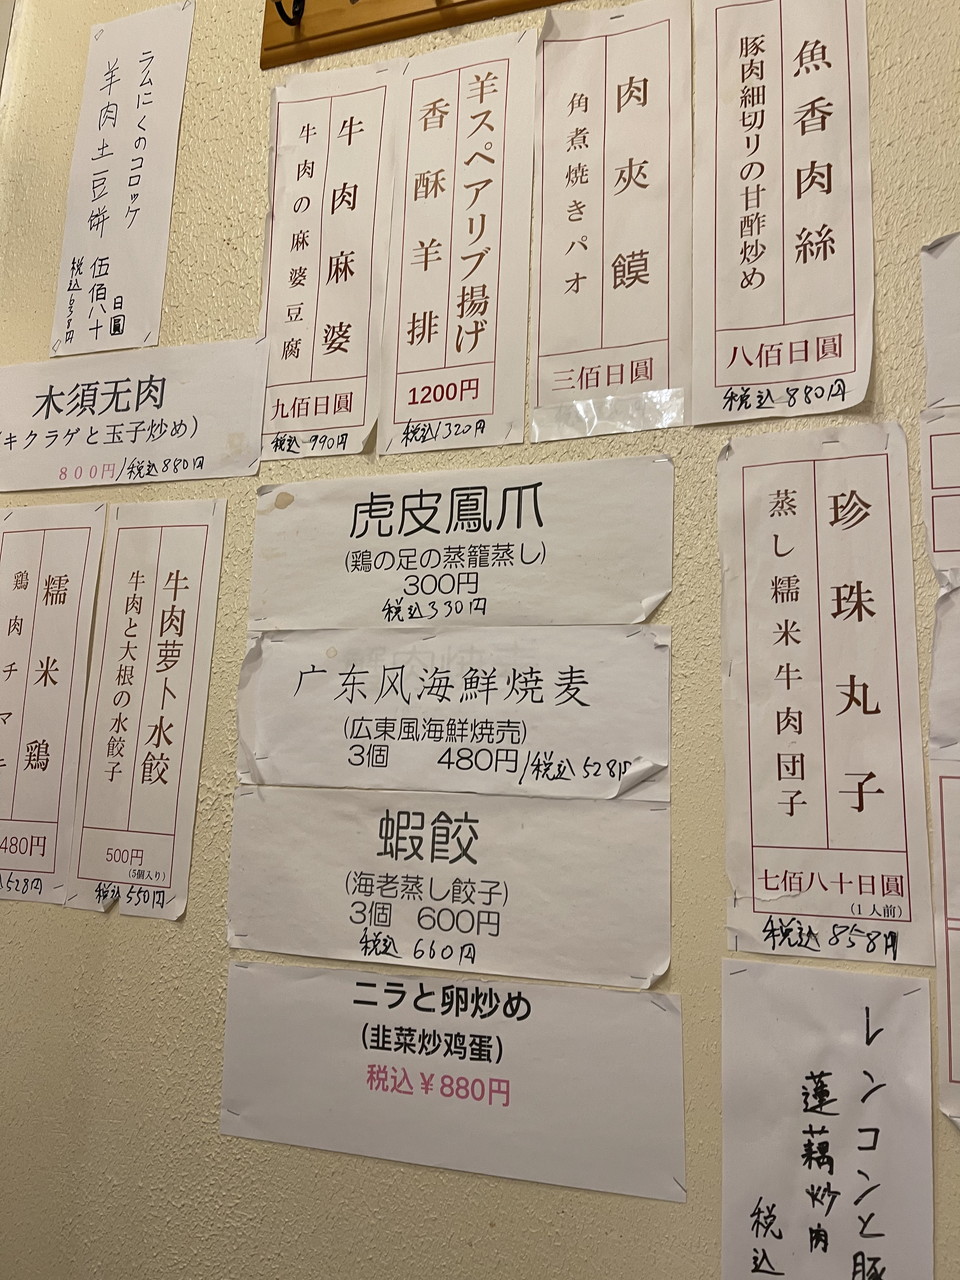 ラムにくのコロッケ
羊肉土豆餅 伍佰八十日圓
税込638円
木須无肉
(キクラゲと玉子炒め)
800円/税込880円
牛肉麻婆
牛肉の麻婆豆腐
九佰日圓
税込990円
羊スペアリブ揚げ
香酥羊排
1200円
税込1320円
肉夾饃
角煮焼きパオ
三佰日圓
魚香肉絲
豚肉細切リの甘酢炒め
八佰日圓
税込880円
糯米鶏
鶏肉チマキ
480円
528円
牛肉萝卜水餃
牛肉と大根の水餃子
500円
(5個入り)
税込550円
虎皮鳳爪
(鶏の足の蒸籠蒸し)
300円
税込330円
广东风海鮮焼麦
(広東風海鮮焼売)
3個 480円/税込528円
蝦餃
(海老蒸し餃子)
3個 600円
税込660円
ニラと卵炒め
(韭菜炒鸡蛋)
税込¥880円
珍珠丸子
蒸し糯米牛肉団子
七佰八十日圓
(1人前)
税込858円
レンコンと豚
蓮藕炒肉
税込